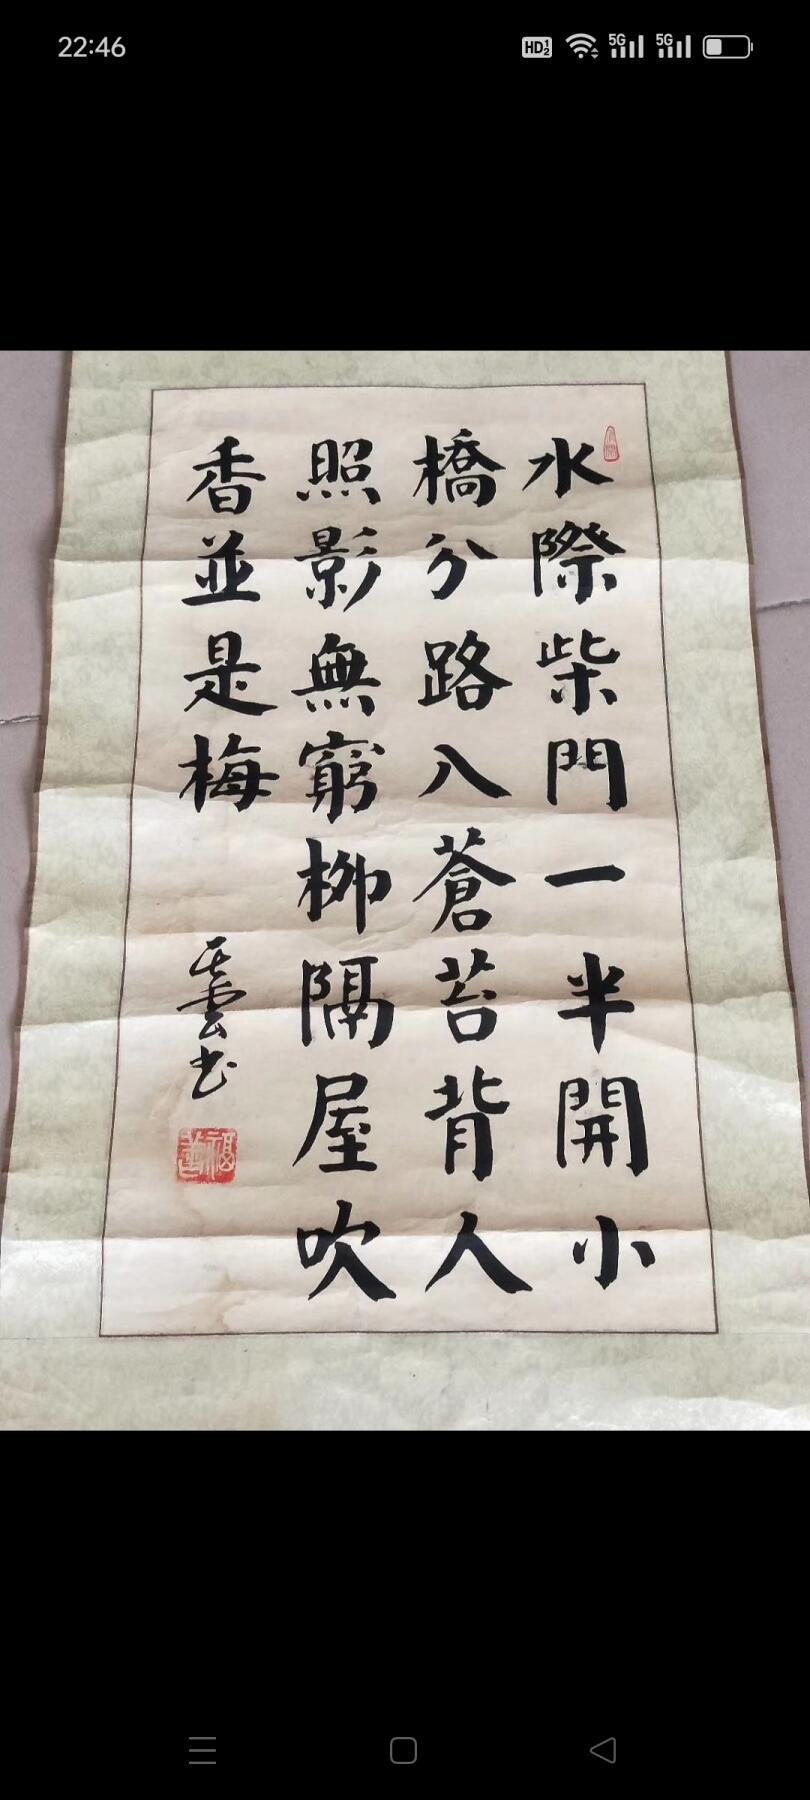 22:46
HD 1 2 5G 5G
水際柴門一半開小
橋分路入蒼苔背人
照影無窮柳隔屋吹
香並是梅
雲书